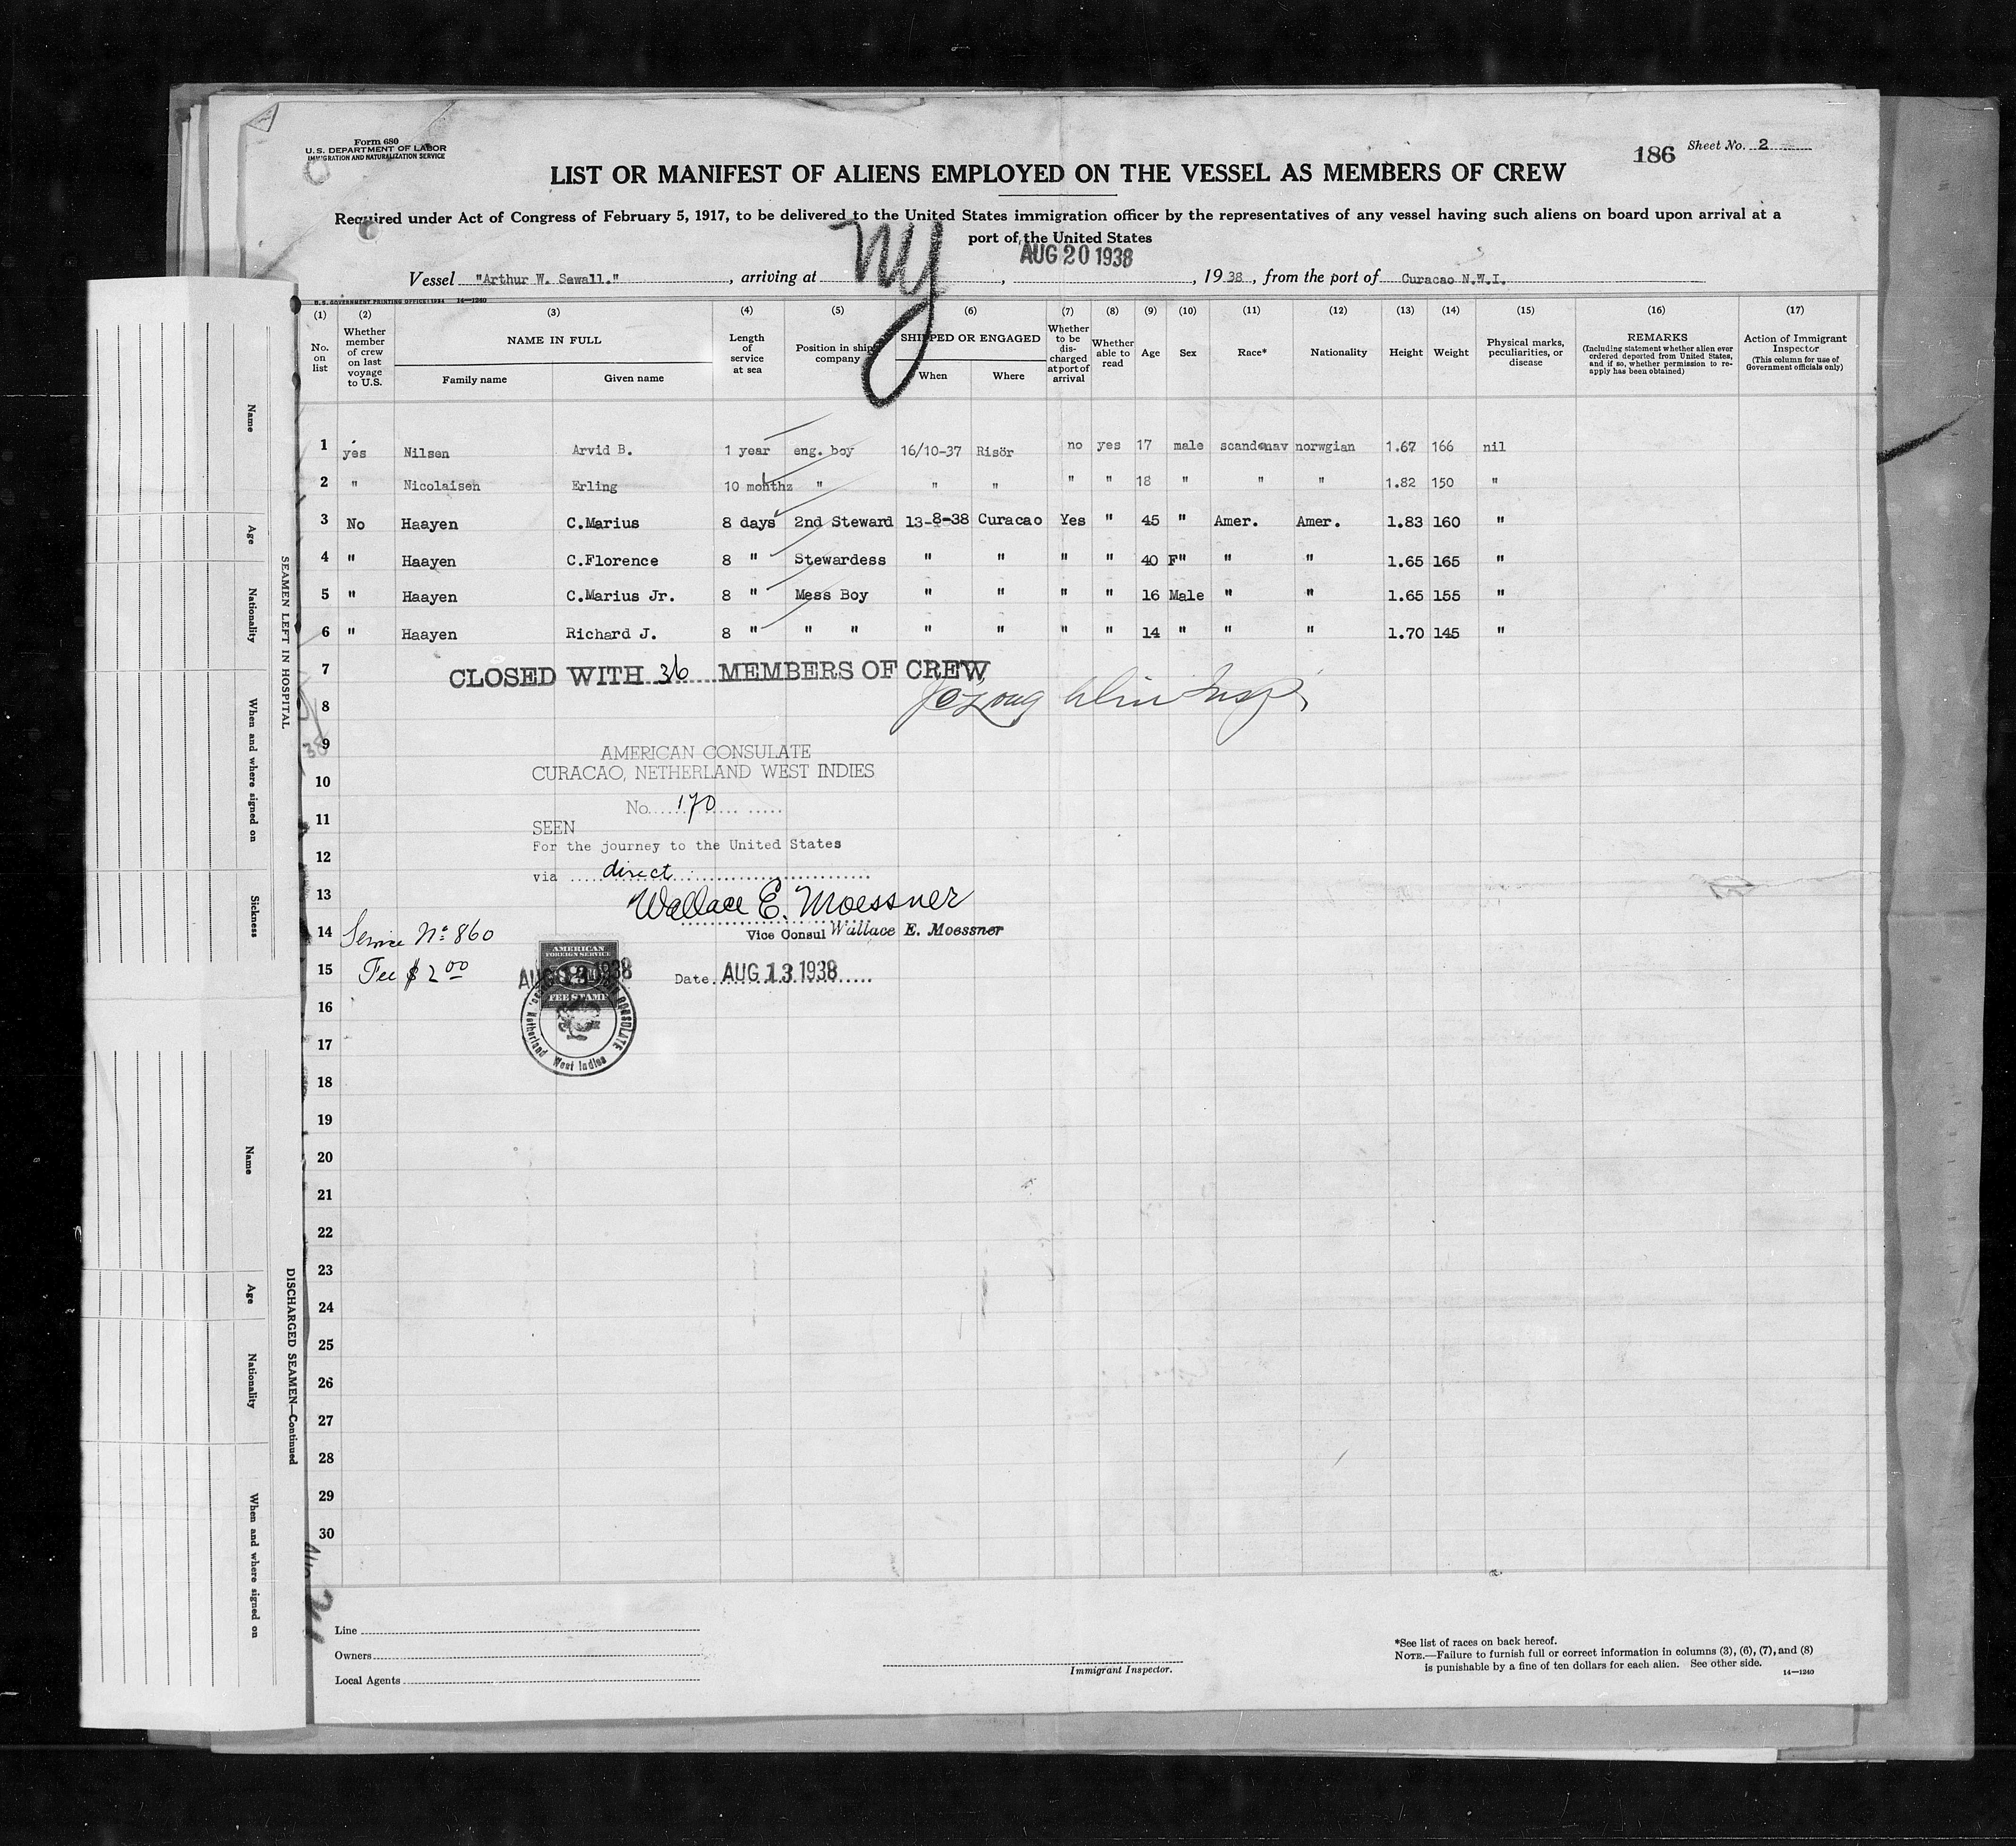 Form 680
U. S. DEPARTMENT OF LABOR
IMMIGRATION AND NATURALIZATION SERVICE
186 Sheet No. 2
LIST OR MANIFEST OF ALIENS EMPLOYED ON THE VESSEL AS MEMBERS OF CREW
Required under Act of Congress of February 5, 1917, to be delivered to the United States immigration officer by the representatives of any vessel having such aliens on board upon arrival at a
port of the United States
AUG 20 1938
Vessel "Arthur W. Sewall.", arriving at NY, 1938, from the port of Curacao N.W.I.
U. S. GOVERNMENT PRINTING OFFICE: 1934 14—1240
(1) (2) (3) (4) (5) (6) (7) (8) (9) (10) (11) (12) (13) (14) (15) (16) (17)
No. on list
Whether member of crew on last voyage to U.S.
NAME IN FULL
Family name Given name
Length of service at sea
Position in ship's company
SHIPPED OR ENGAGED
When Where
Whether to be discharged at port of arrival
Whether able to read
Age
Sex
Race*
Nationality
Height
Weight
Physical marks, peculiarities, or disease
REMARKS
(Including statement whether alien ever ordered deported from United States, and if so, whether permission to re-apply has been obtained)
Action of Immigrant Inspector
(This column for use of Government officials only)
1 yes Nilsen Arvid B. 1 year eng. boy 16/10-37 Risör no yes 17 male scandenav norwgian 1.67 166 nil
2 " Nicolaisen Erling 10 monthz " " " " " 18 " " " 1.82 150 "
3 No Haayen C.Marius 8 days 2nd Steward 13-8-38 Curacao Yes " 45 " Amer. Amer. 1.83 160 "
4 " Haayen C.Florence 8 " Stewardess " " " " 40 F" " " 1.65 165 "
5 " Haayen C.Marius Jr. 8 " Mess Boy " " " " 16 Male " " 1.65 155 "
6 " Haayen Richard J. 8 " " " " " " " 14 " " " 1.70 145 "
7
CLOSED WITH 36 MEMBERS OF CREW
8
9
AMERICAN CONSULATE
CURACAO, NETHERLAND WEST INDIES
10
No. 170
11
SEEN
For the journey to the United States
12
via direct
13
Wallace E. Moessner
Vice Consul Wallace E. Moessner
14 Service No. 860
15 Fee $ 2 00
AMERICAN
FOREIGN SERVICE
FEE STAMP
AUG 13 1938
Date AUG 13 1938
Netherland West Indies
16
17
18
19
20
21
22
23
24
25
26
27
28
29
30
Line
Owners
Local Agents
Immigrant Inspector.
*See list of races on back hereof.
NOTE.—Failure to furnish full or correct information in columns (3), (6), (7), and (8)
is punishable by a fine of ten dollars for each alien. See other side.
14—1240
SEAMEN LEFT IN HOSPITAL
Name
Age
Nationality
When and where signed on
Sickness
DISCHARGED SEAMEN—Continued
Name
Age
Nationality
When and where signed on